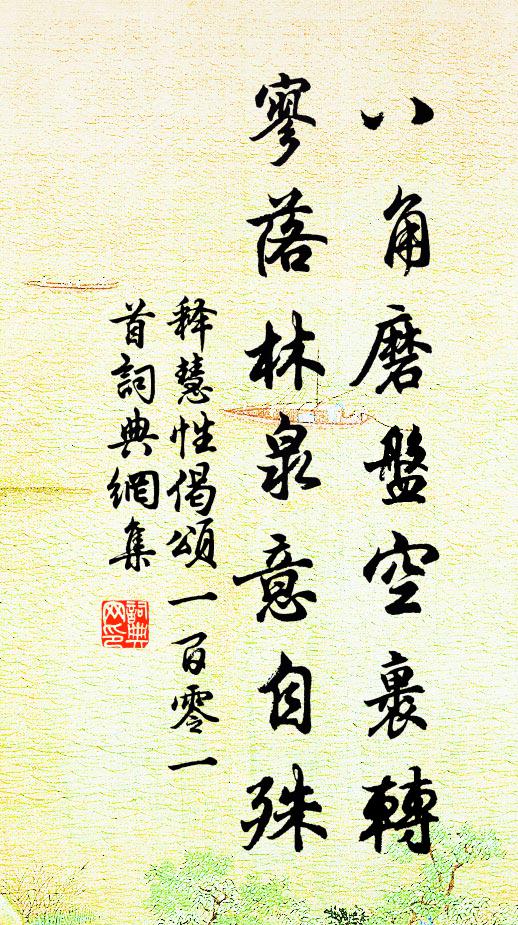 八角磨盤空裏轉
寥落林泉意自殊
釋慧性偈頌一百零一
首詞典網集
詞典网印